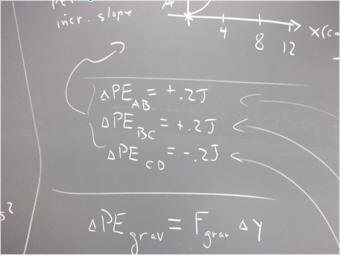 incr. slope
4 8 12
ΔPE_AB = +.2J
ΔPE_BC = +.2J
ΔPE_CD = -.2J
ΔPE_grav = F_grav Δy